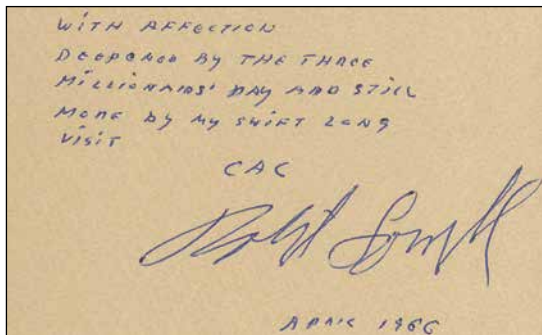 WITH AFFECTION
DEEPENED BY THE THREE
MILLIONAIRS' DAY AND STILL
MORE BY MY SWIFT LONG
VISIT
CAC
Robert Lowell
APRIL 1966